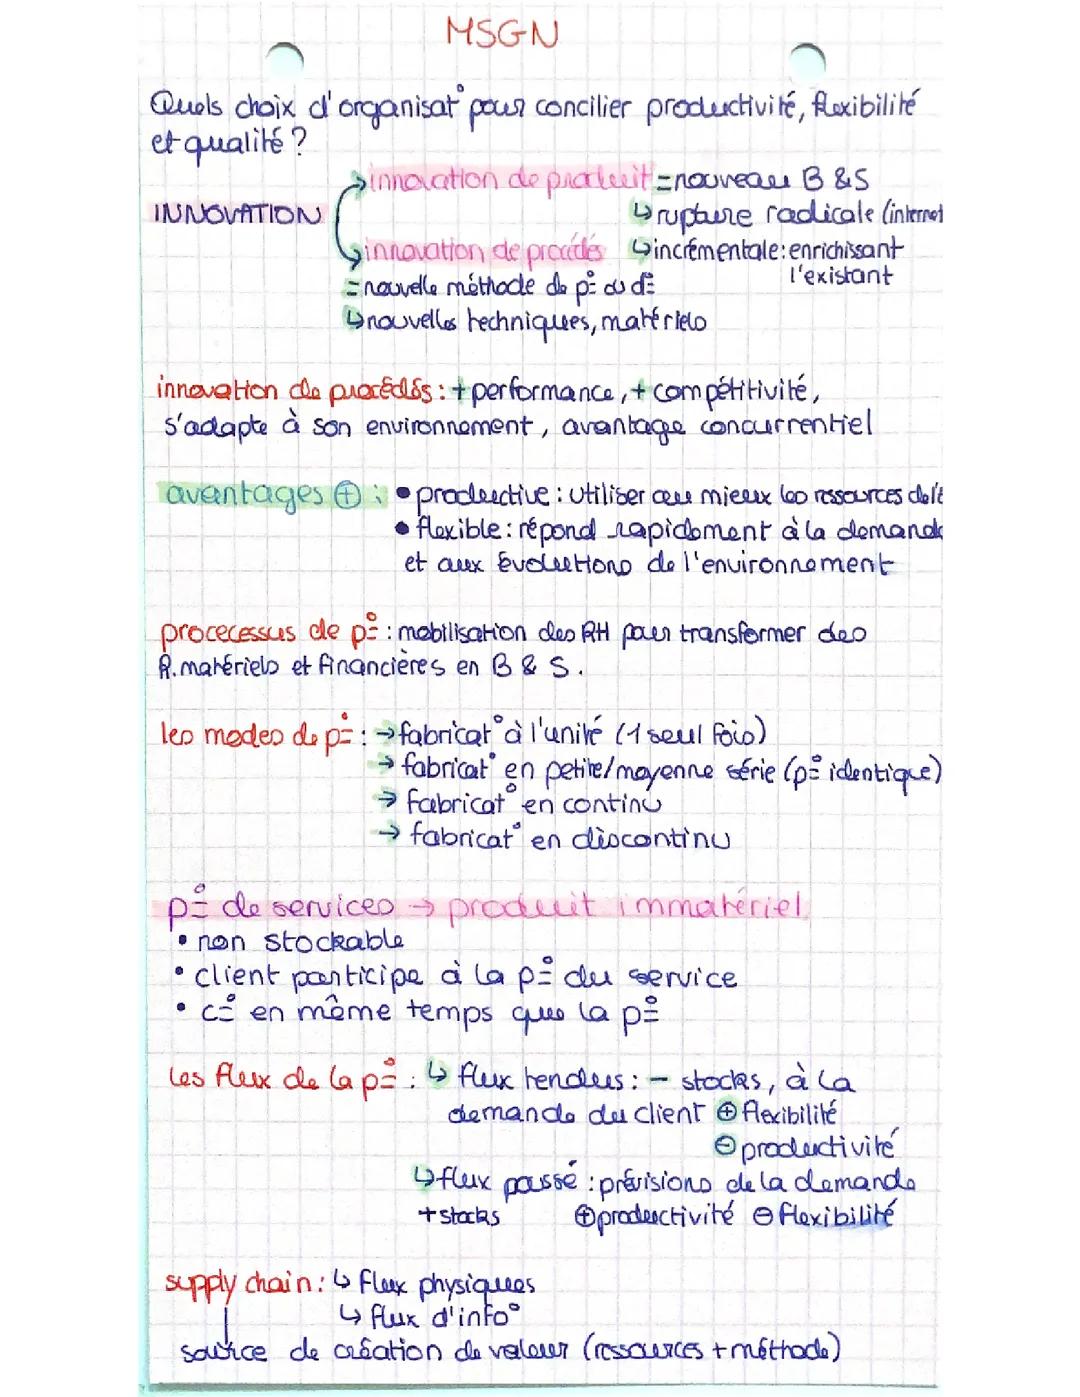 MSGN
Quels choix d'organisat° pour concilier productivité, flexibilité
et qualité ?
→innovation de produit = nouveau B & S
INNOVATION
↳ rupture radicale (internet
→innovation de procédés ↳ incrémentale : enrichissant
l'existant
= nouvelle méthode de p° ou d°
↳ nouvelles techniques, matériels
innovation de procédés : + performance, + compétitivité,
s'adapte à son environnement, avantage concurrentiel
avantages ⊕ : • productive : utiliser au mieux les ressources de l'E
• flexible : répond rapidement à la demande
et aux évolutions de l'environnement
procecessus de p° : mobilisation des RH pour transformer des
R. matériels et financières en B & S.
les modes de p° : → fabricat° à l'unité (1 seul fois)
→ fabricat° en petite/moyenne série (p° identique)
→ fabricat° en continu
→ fabricat° en discontinu
p° de services → produit immatériel
• non stockable
• client participe à la p° du service
• c° en même temps que la p°
Les flux de la p° : ↳ flux tendus : – stocks, à la
demande du client ⊕ flexibilité
⊖ productivité
↳ flux poussé : prévisions de la demande
+ stocks ⊕ productivité ⊖ flexibilité
supply chain : ↳ flux physiques
↳ flux d'info°
source de création de valeur (ressources + méthode)